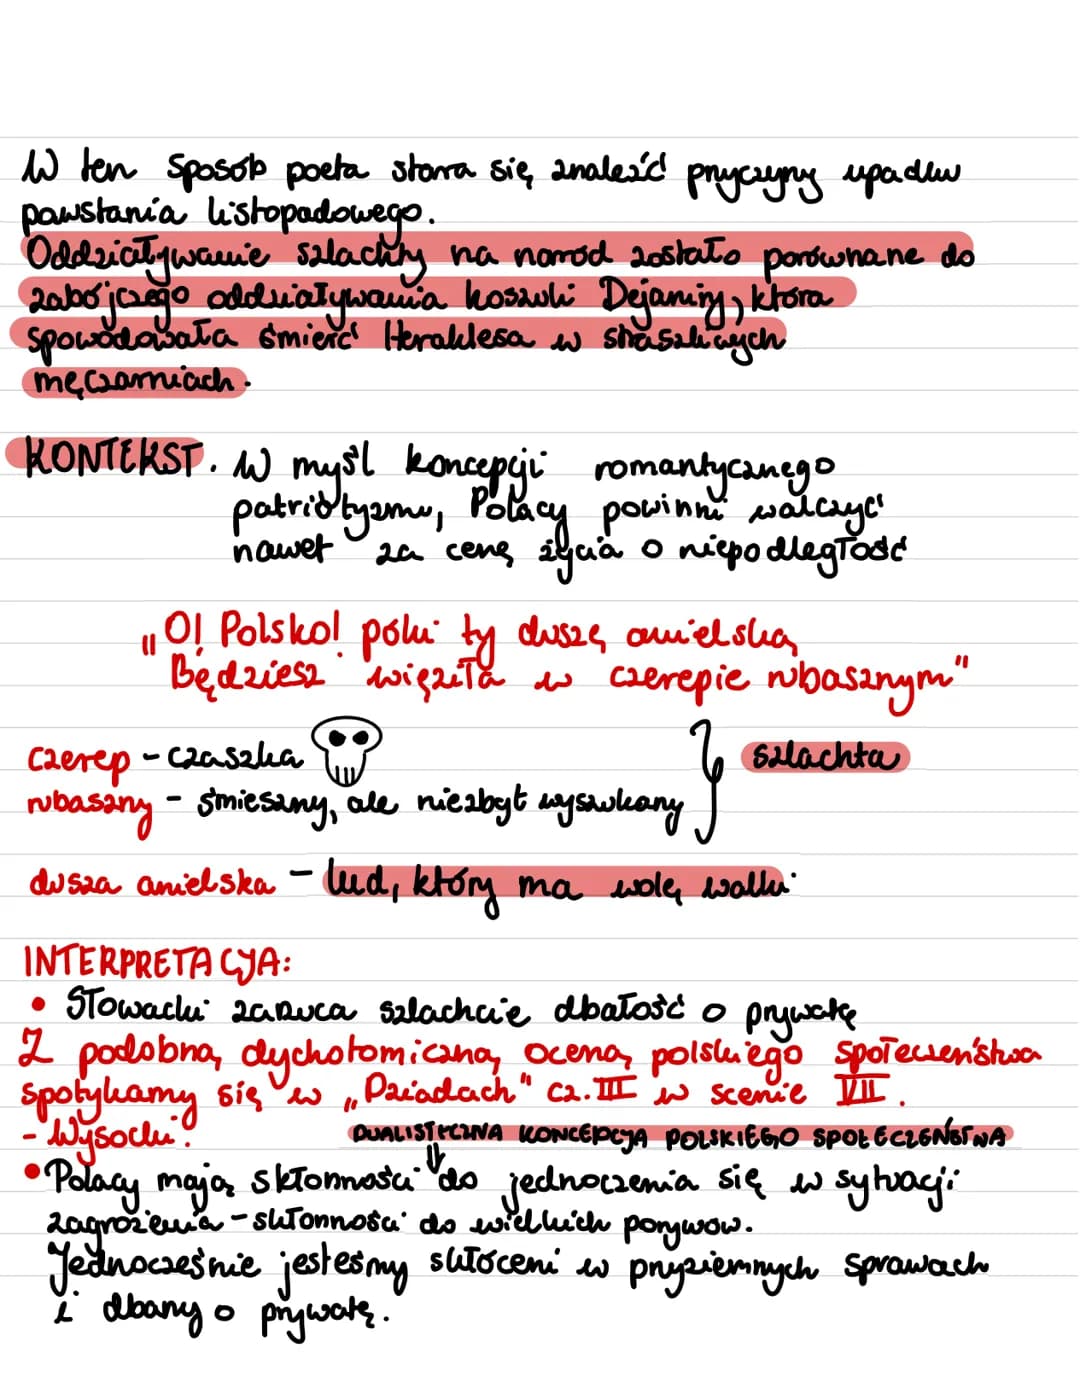 W ten sposób poeta stara się znaleźć przyczyny upadku
powstania listopadowego.
Oddziaływanie szlachty na naród zostało porównane do
zabójczego oddziaływania koszuli Dejaniry, która
spowodowała śmierć Heraklesa w straszliwych
męczarniach.
KONTEKST. W myśl koncepcji romantycznego
patriotyzmu, Polacy powinni walczyć
nawet za cenę życia o niepodległość
„O! Polsko! póki ty duszę anielską
Będziesz więziła w czerepie rubasznym"
czerep - czaszka
szlachta
rubaszny - śmieszny, ale niezbyt wyszukany
dusza anielska - lud, który ma wolę walki
INTERPRETACJA:
• Słowacki zarzuca szlachcie dbałość o prywatę
Z podobną dychotomiczną oceną polskiego społeczeństwa
spotykamy się w „Dziadach" cz. III w scenie VII.
- Wysocki.
DUALISTYCZNA KONCEPCJA POLSKIEGO SPOŁECZEŃSTWA
• Polacy mają skłonności do jednoczenia się w sytuacji
zagrożenia - skłonności do wielkich porywów.
Jednocześnie jesteśmy skłóceni w przyziemnych sprawach
i dbamy o prywatę.